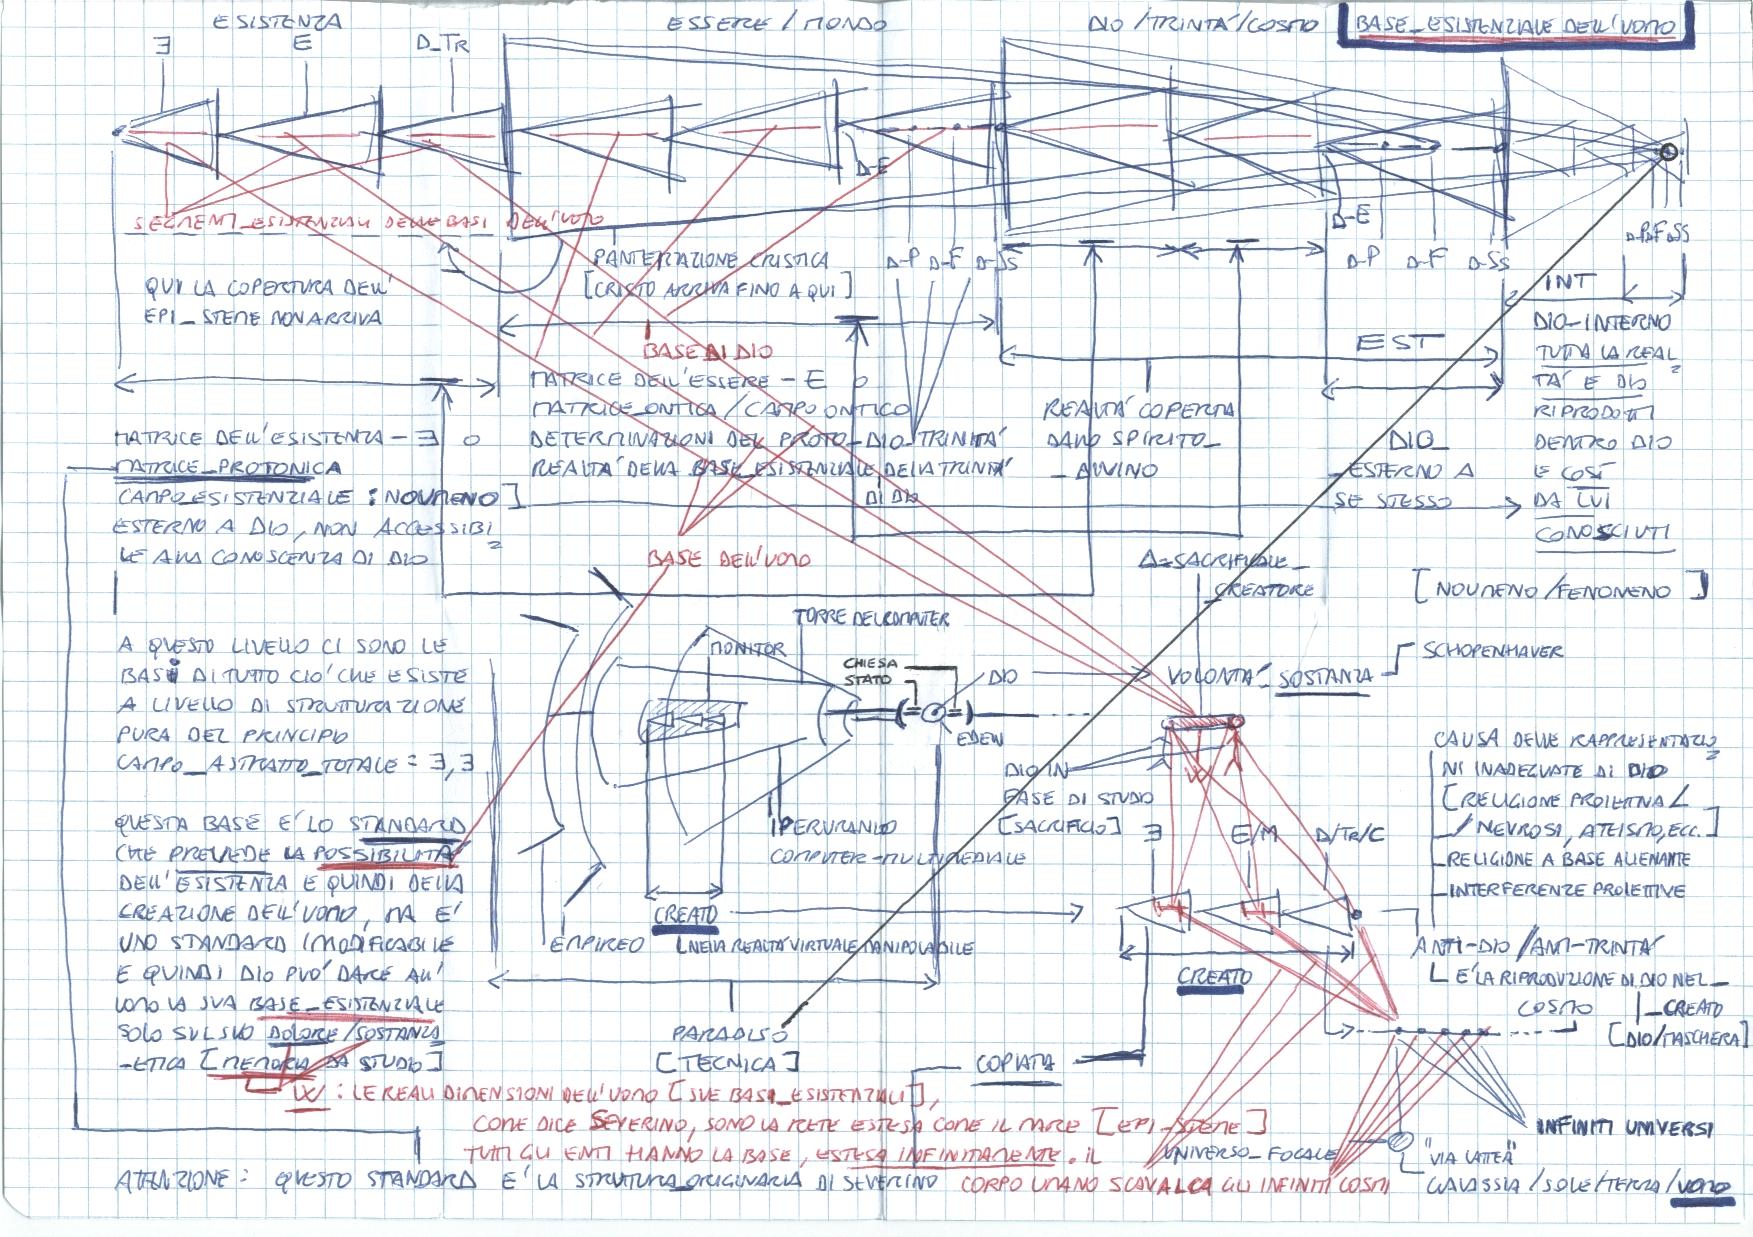 ESISTENZA
ESSERE / MONDO
DIO / TRINITÁ / COSMO
BASE_ESISTENZIALE DELL'UOMO
Ǝ
E
D_TR
Δ-E
SEGMENTI_ESISTENZIALI DELLE BASI DELL'UOMO
PANTERAZIONE CRISTICA
[CRISTO ARRIVA FINO A QUI]
Δ-P Δ-F Δ-SS
Δ-E
Δ-P Δ-F Δ-SS
Δ-P Δ-F Δ-SS
QUI LA COPERTURA DELL'
EPI_STEME NON ARRIVA
BASE DI DIO
INT
EST
DIO-INTERNO
TUTTA LA REAL
TÁ E DIO
RIPRODOTTI
DENTRO DIO
E COSÍ
DA LUI
CONOSCIUTI
MATRICE DELL'ESSERE - E O
MATRICE_ONTICA / CAMPO ONTICO
DETERMINAZIONI DEL PROTO_DIO_TRINITÁ
REALTÁ DELLA BASE_ESISTENZIALE DELLA TRINITÁ
DI DIO
REALTÁ COPERTA
DALLO SPIRITO_
_DIVINO
DIO_
_ESTERNO A
SE STESSO
MATRICE DELL'ESISTENZA - Ǝ O
MATRICE_PROTONICA
CAMPO_ESISTENZIALE : NOUMENO]
ESTERNO A DIO, NON ACCESSIBI
LE ALLA CONOSCENZA DI DIO
BASE DELL'UOMO
Δ=SACRIFICALE_
_CREATORE
[NOUMENO / FENOMENO]
A QUESTO LIVELLO CI SONO LE
BASI DI TUTTO CIÓ CHE ESISTE
A LIVELLO DI STRUTTURAZIONE
PURA DEL PRINCIPIO
CAMPO_ASTRATTO_TOTALE = Ǝ,Ǝ
TORRE DEL COMPUTER
MONITOR
CHIESA
STATO
DIO
EDEN
VOLONTÁ_SOSTANZA
SCHOPENHAUER
DIO IN
FASE DI STUDIO
[SACRIFICIO]
IPERURANIO
COMPUTER-MULTIMEDIALE
Ǝ
E/M
D/TR/C
CAUSA DELLE RAPPRESENTAZIO
NI INADEGUATE DI DIO
[RELIGIONE PROIETTIVA /
/ NEVROSI, ATEISMO, ECC.]
-RELIGIONE A BASE ALIENANTE
-INTERFERENZE PROIETTIVE
QUESTA BASE É LO STANDARD
CHE PREVEDE LA POSSIBILITÁ
DELL'ESISTENZA E QUINDI DELLA
CREAZIONE DELL'UOMO, MA É
UNO STANDARD IMMODIFICABILE
E QUINDI DIO PUÓ DARE ALL'
UOMO LA SUA BASE_ESISTENZIALE
SOLO SUL SUO DOLORE/SOSTANZA
-ETICA [MEMORIA DA STUDIO]
EMPIREO
CREATO
NELLA REALTÁ VIRTUALE MANIPOLABILE
CREATO
PARADISO
[TECNICA]
COPIATA
ANTI-DIO / ANTI-TRINITÁ
É LA RIPRODUZIONE DI DIO NEL_
COSMO
_CREATO
[DIO/MASCHERA]
W : LE REALI DIMENSIONI DELL'UOMO [SUE BASI_ESISTENZIALI],
COME DICE SEVERINO, SONO LA RETE ESTESA COME IL MARE [EPI_STEME]
TUTTI GLI ENTI HANNO LA BASE, ESTESA INFINITAMENTE. IL
CORPO UMANO SCAVALCA GLI INFINITI COSMI
INFINITI UNIVERSI
UNIVERSO_FOCALE
"VIA LATTEA"
GALASSIA / SOLE / TERRA / UOMO
ATTENZIONE : QUESTO STANDARD É LA STRUTTURA_ORIGINARIA DI SEVERINO